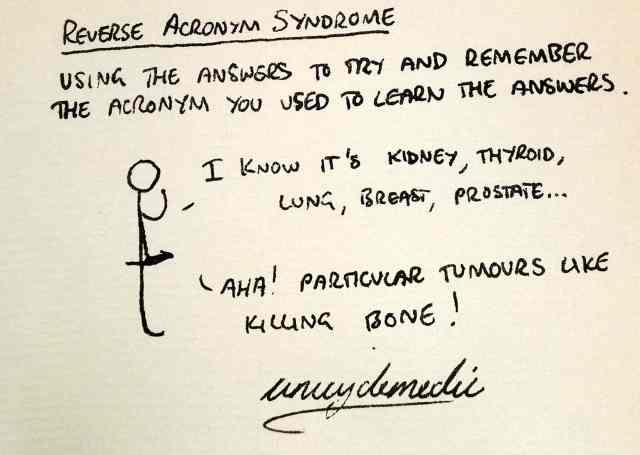 REVERSE ACRONYM SYNDROME
USING THE ANSWERS TO TRY AND REMEMBER
THE ACRONYM YOU USED TO LEARN THE ANSWERS.
I KNOW IT'S KIDNEY, THYROID,
LUNG, BREAST, PROSTATE...
AHA! PARTICULAR TUMOURS LIKE
KILLING BONE!